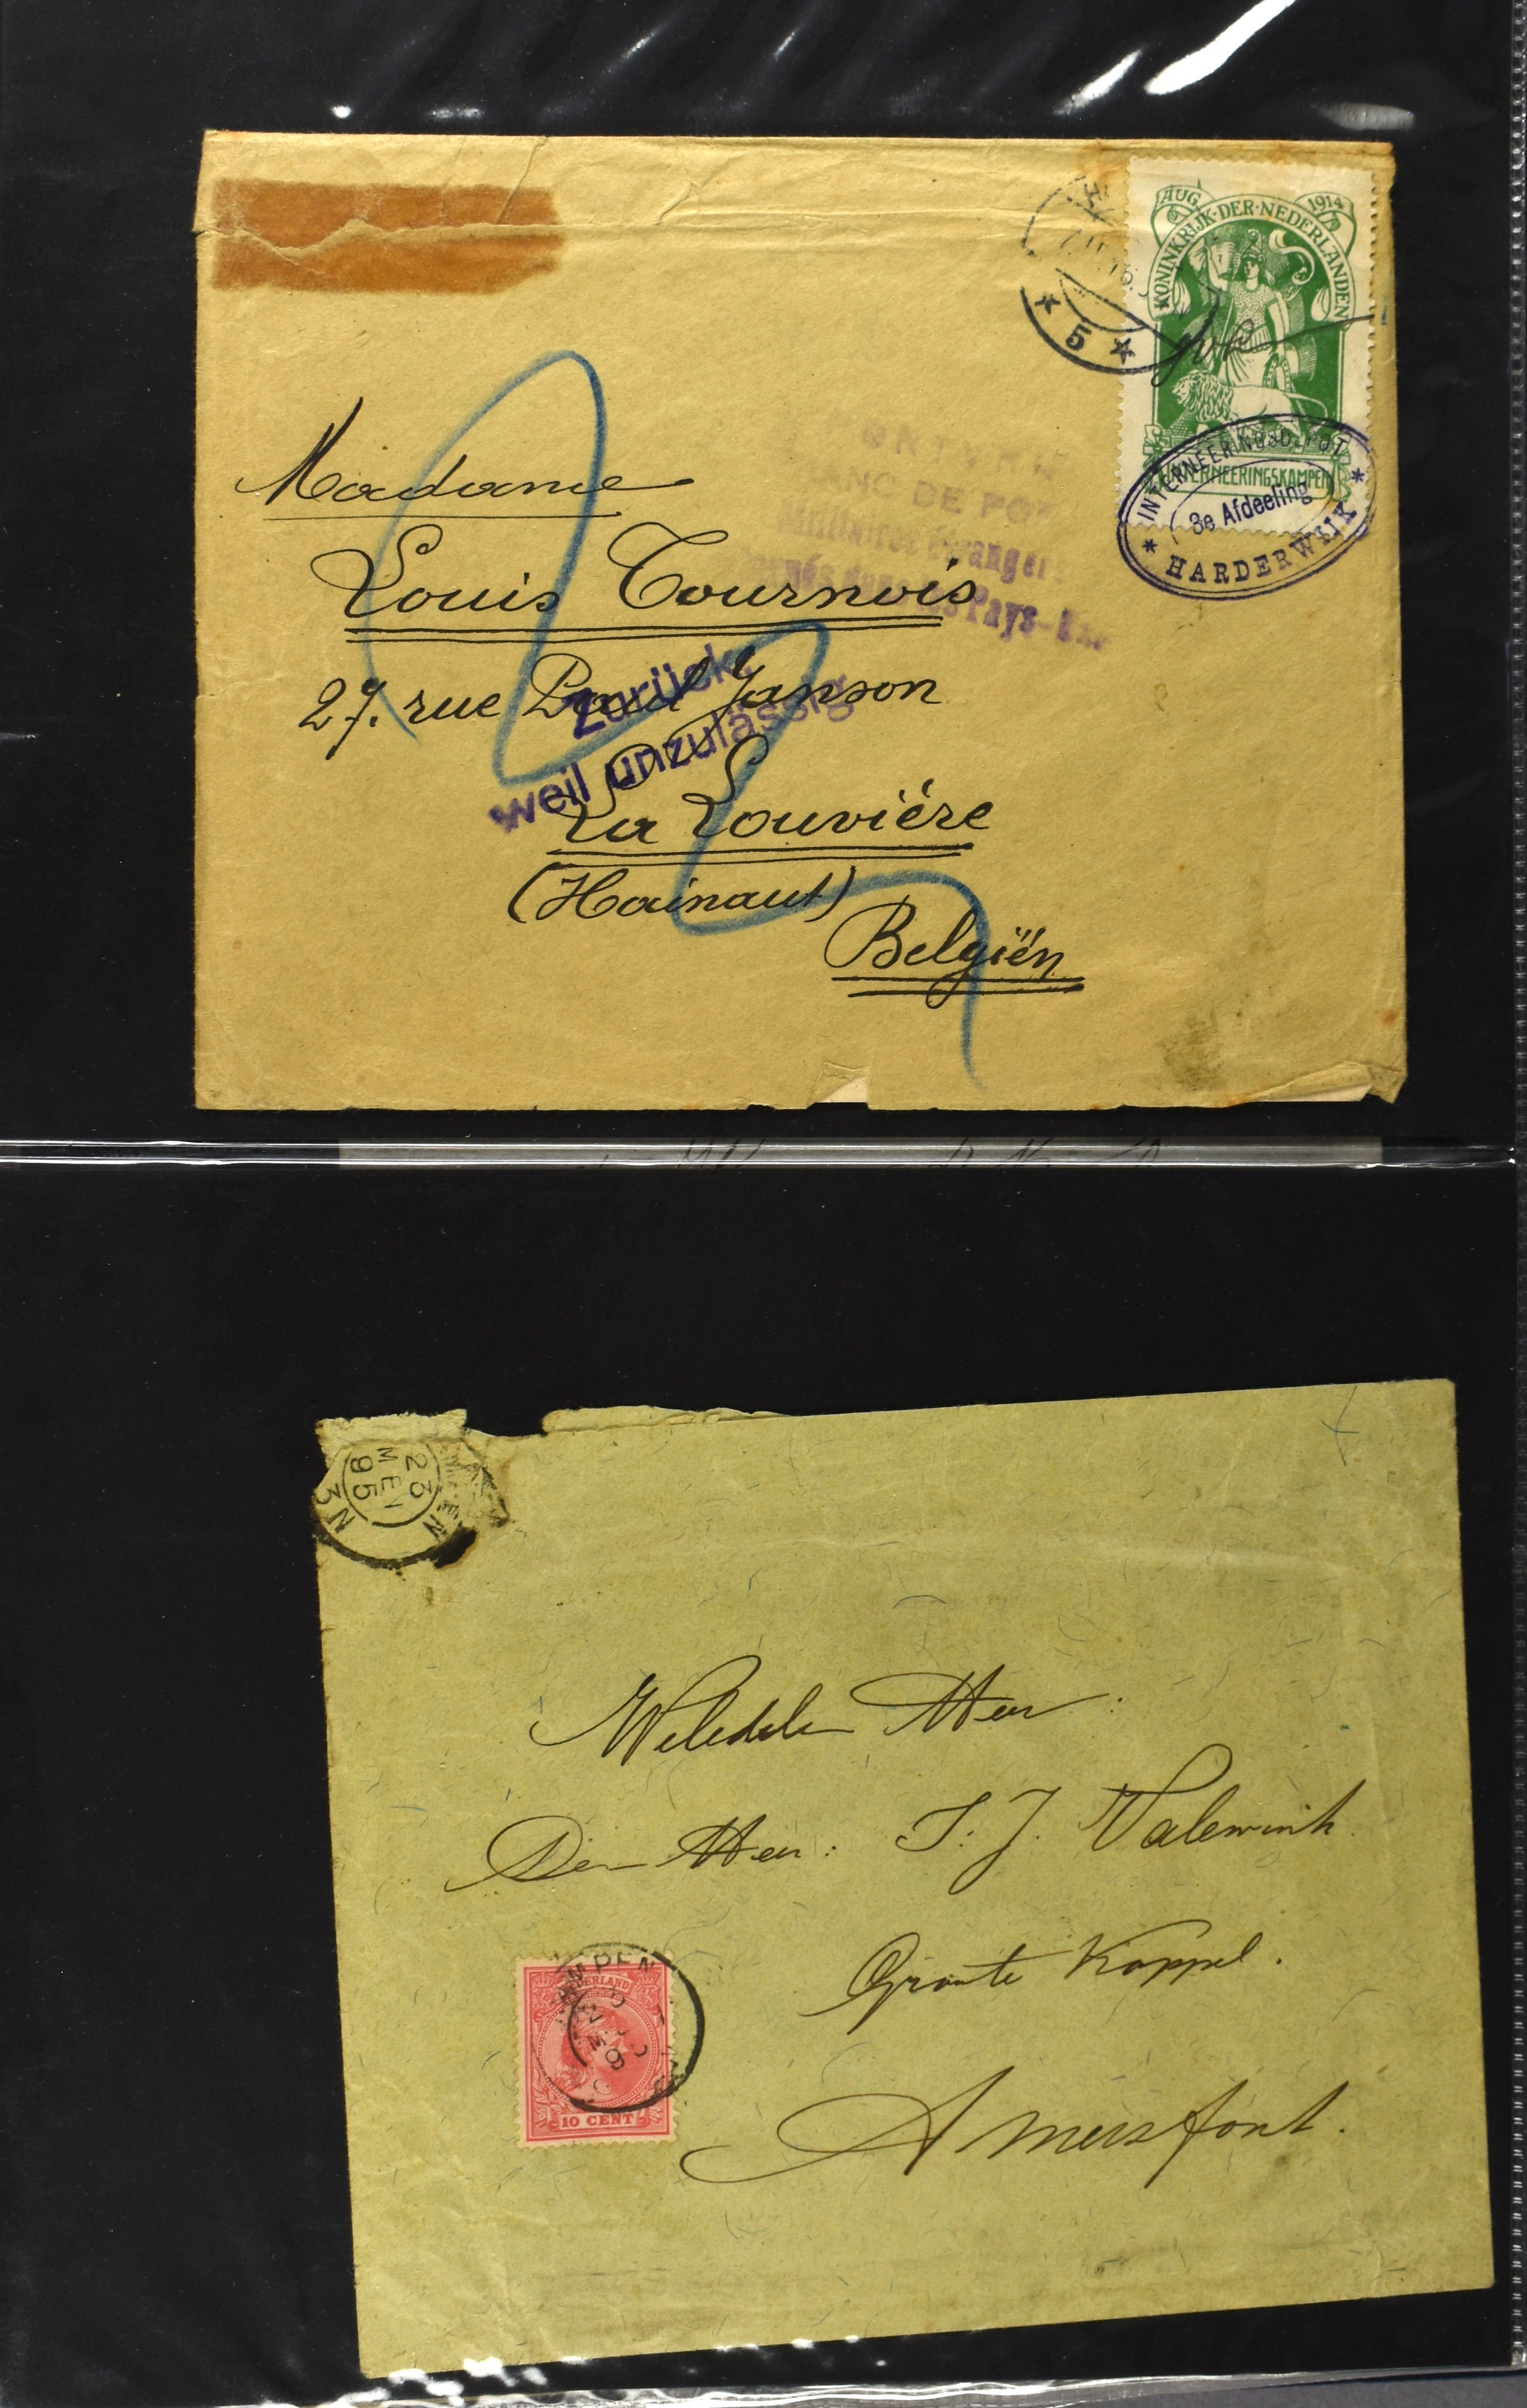 AUG. 1914
KONINKRIJK·DER·NEDERLANDEN
INTERNEERINGSKAMPEN
* 5 *
INTERNEERINGSDEPOT
3e Afdeeling
* HARDERWIJK *
FRANC DE PORT
Militaires étrangers
internés dans les Pays-Bas
Madame
Louis Tournois
27. rue Paul Janson
La Louvière
(Hainaut)
Belgiën
Zurück,
weil unzulässig
23
MEI
95
3 N
Weledele Heer:
Den Heer: T. J. Valewink
Groote Koppel.
Amersfoort.
NEDERLAND
10 CENT
KAMPEN